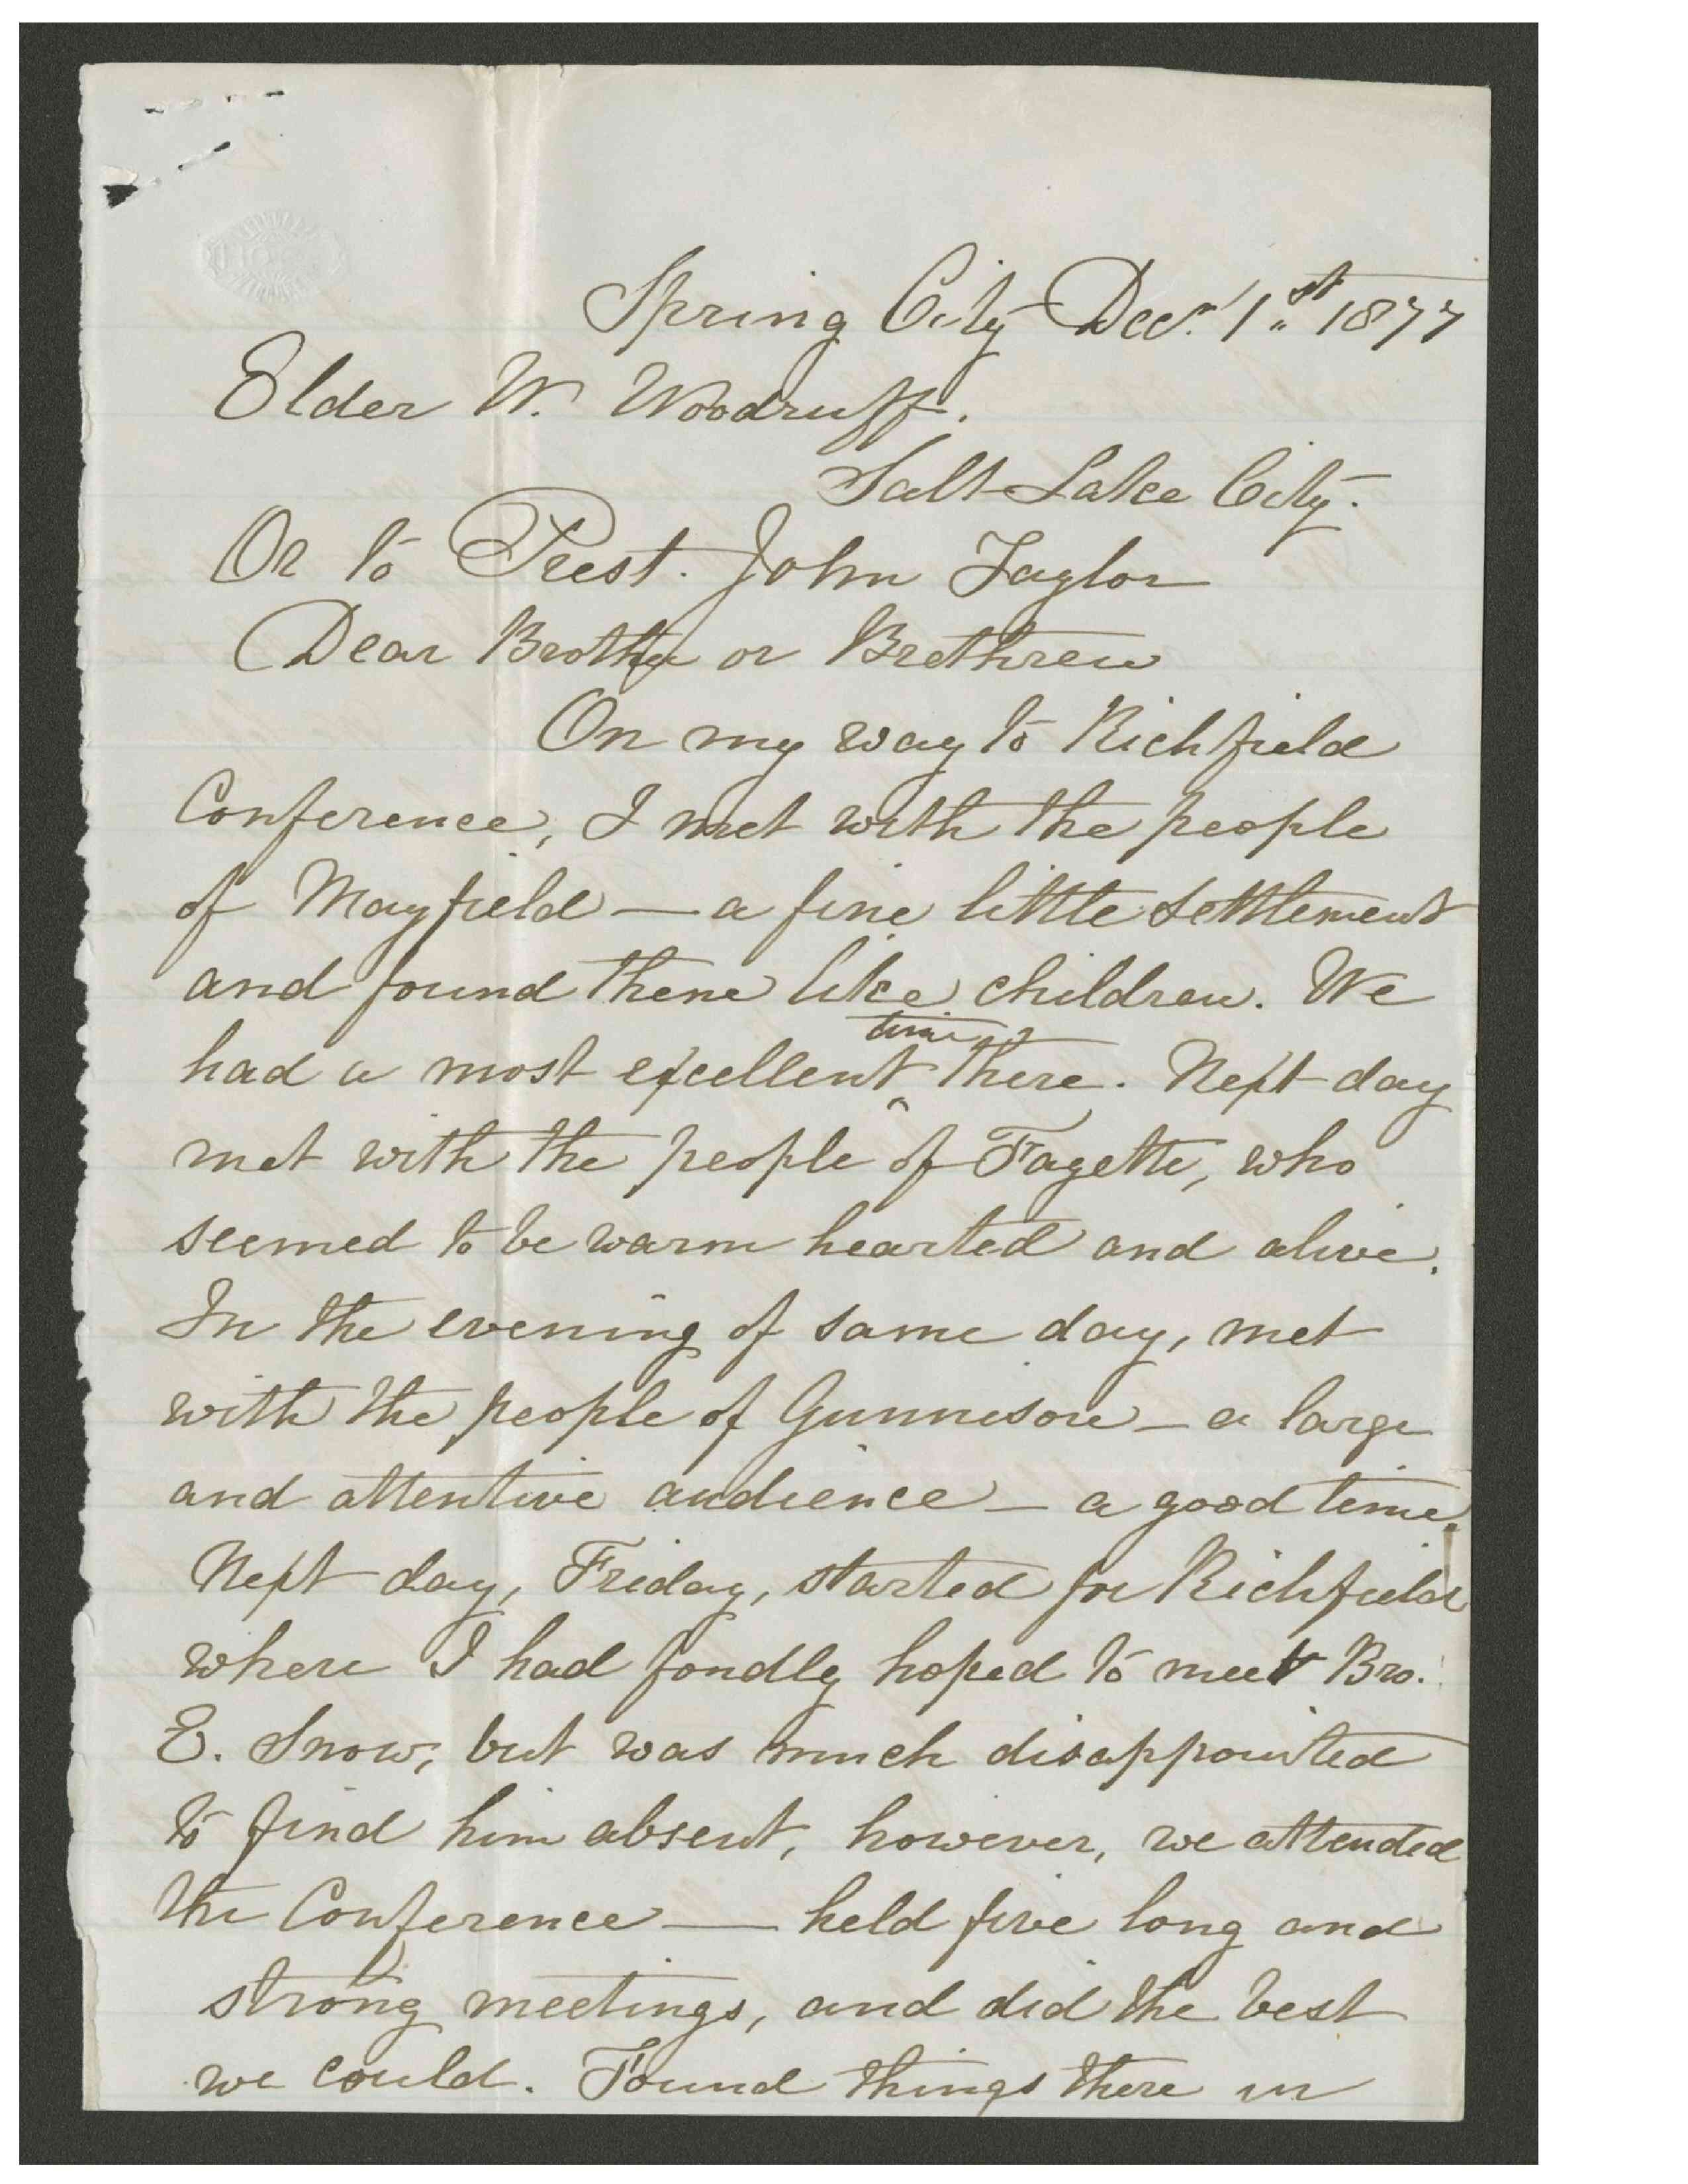 Spring City Dec. 1st 1877
Elder W. Woodruff.
Salt Lake City.
Or to Prest. John Taylor
Dear Brother or Brethren
On my way to Richfield
Conference, I met with the people
of Mayfield — a fine little settlement
and found them like children. We
time
had a most excellent ‸ there. Next day
met with the people of Fayette, who
seemed to be warm hearted and alive.
In the evening of same day, met
with the people of Gunnison — a large
and attentive audience — a good time.
Next day, Friday, started for Richfield
where I had fondly hoped to meet Bro.
E. Snow, but was much disappointed
to find him absent, however, we attended
the Conference — held five long and
strong meetings, and did the best
we could. Found things there in